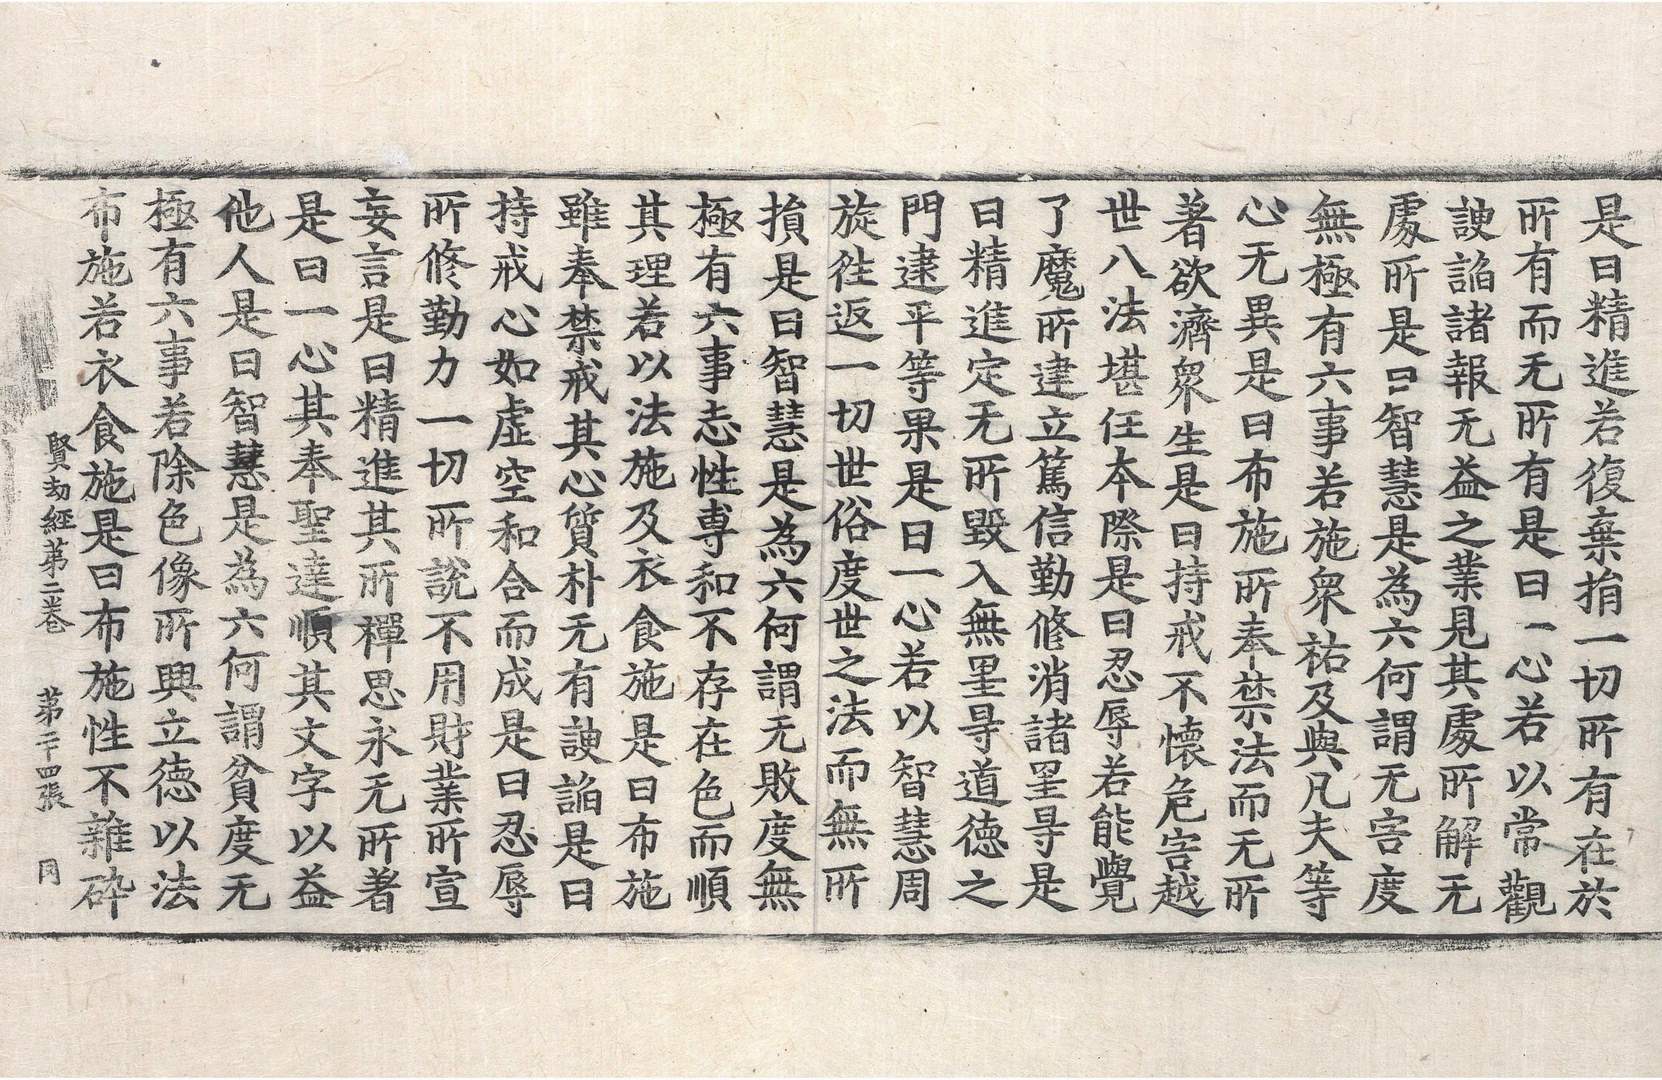 是曰精進若復棄捐一切所有在於
所有而无所有是曰一心若以常觀
諛諂諸報无益之業見其處所解无
處所是曰智慧是為六何謂无害度
無極有六事若施衆祐及與凡夫等
心无異是曰布施所奉禁法而无所
著欲濟衆生是曰持戒不懷危害越
世八法堪任本際是曰忍辱若能覺
了魔所建立篤信勤修消諸罣㝵是
曰精進定无所毀入無罣㝵道德之
門逮平等果是曰一心若以智慧周
旋徃返一切世俗度世之法而無所
損是曰智慧是為六何謂无敗度無
極有六事志性專和不存在色而順
其理若以法施及衣食施是曰布施
雖奉禁戒其心質朴无有諛諂是曰
持戒心如虛空和合而成是曰忍辱
所修勤力一切所說不用財業所宣
妄言是曰精進其所禪思永无所著
是曰一心其奉聖達順其文字以益
他人是曰智慧是為六何謂貧度无
極有六事若除色像所興立德以法
布施若衣食施是曰布施性不雜碎
賢劫經第二卷 第二十四張 同